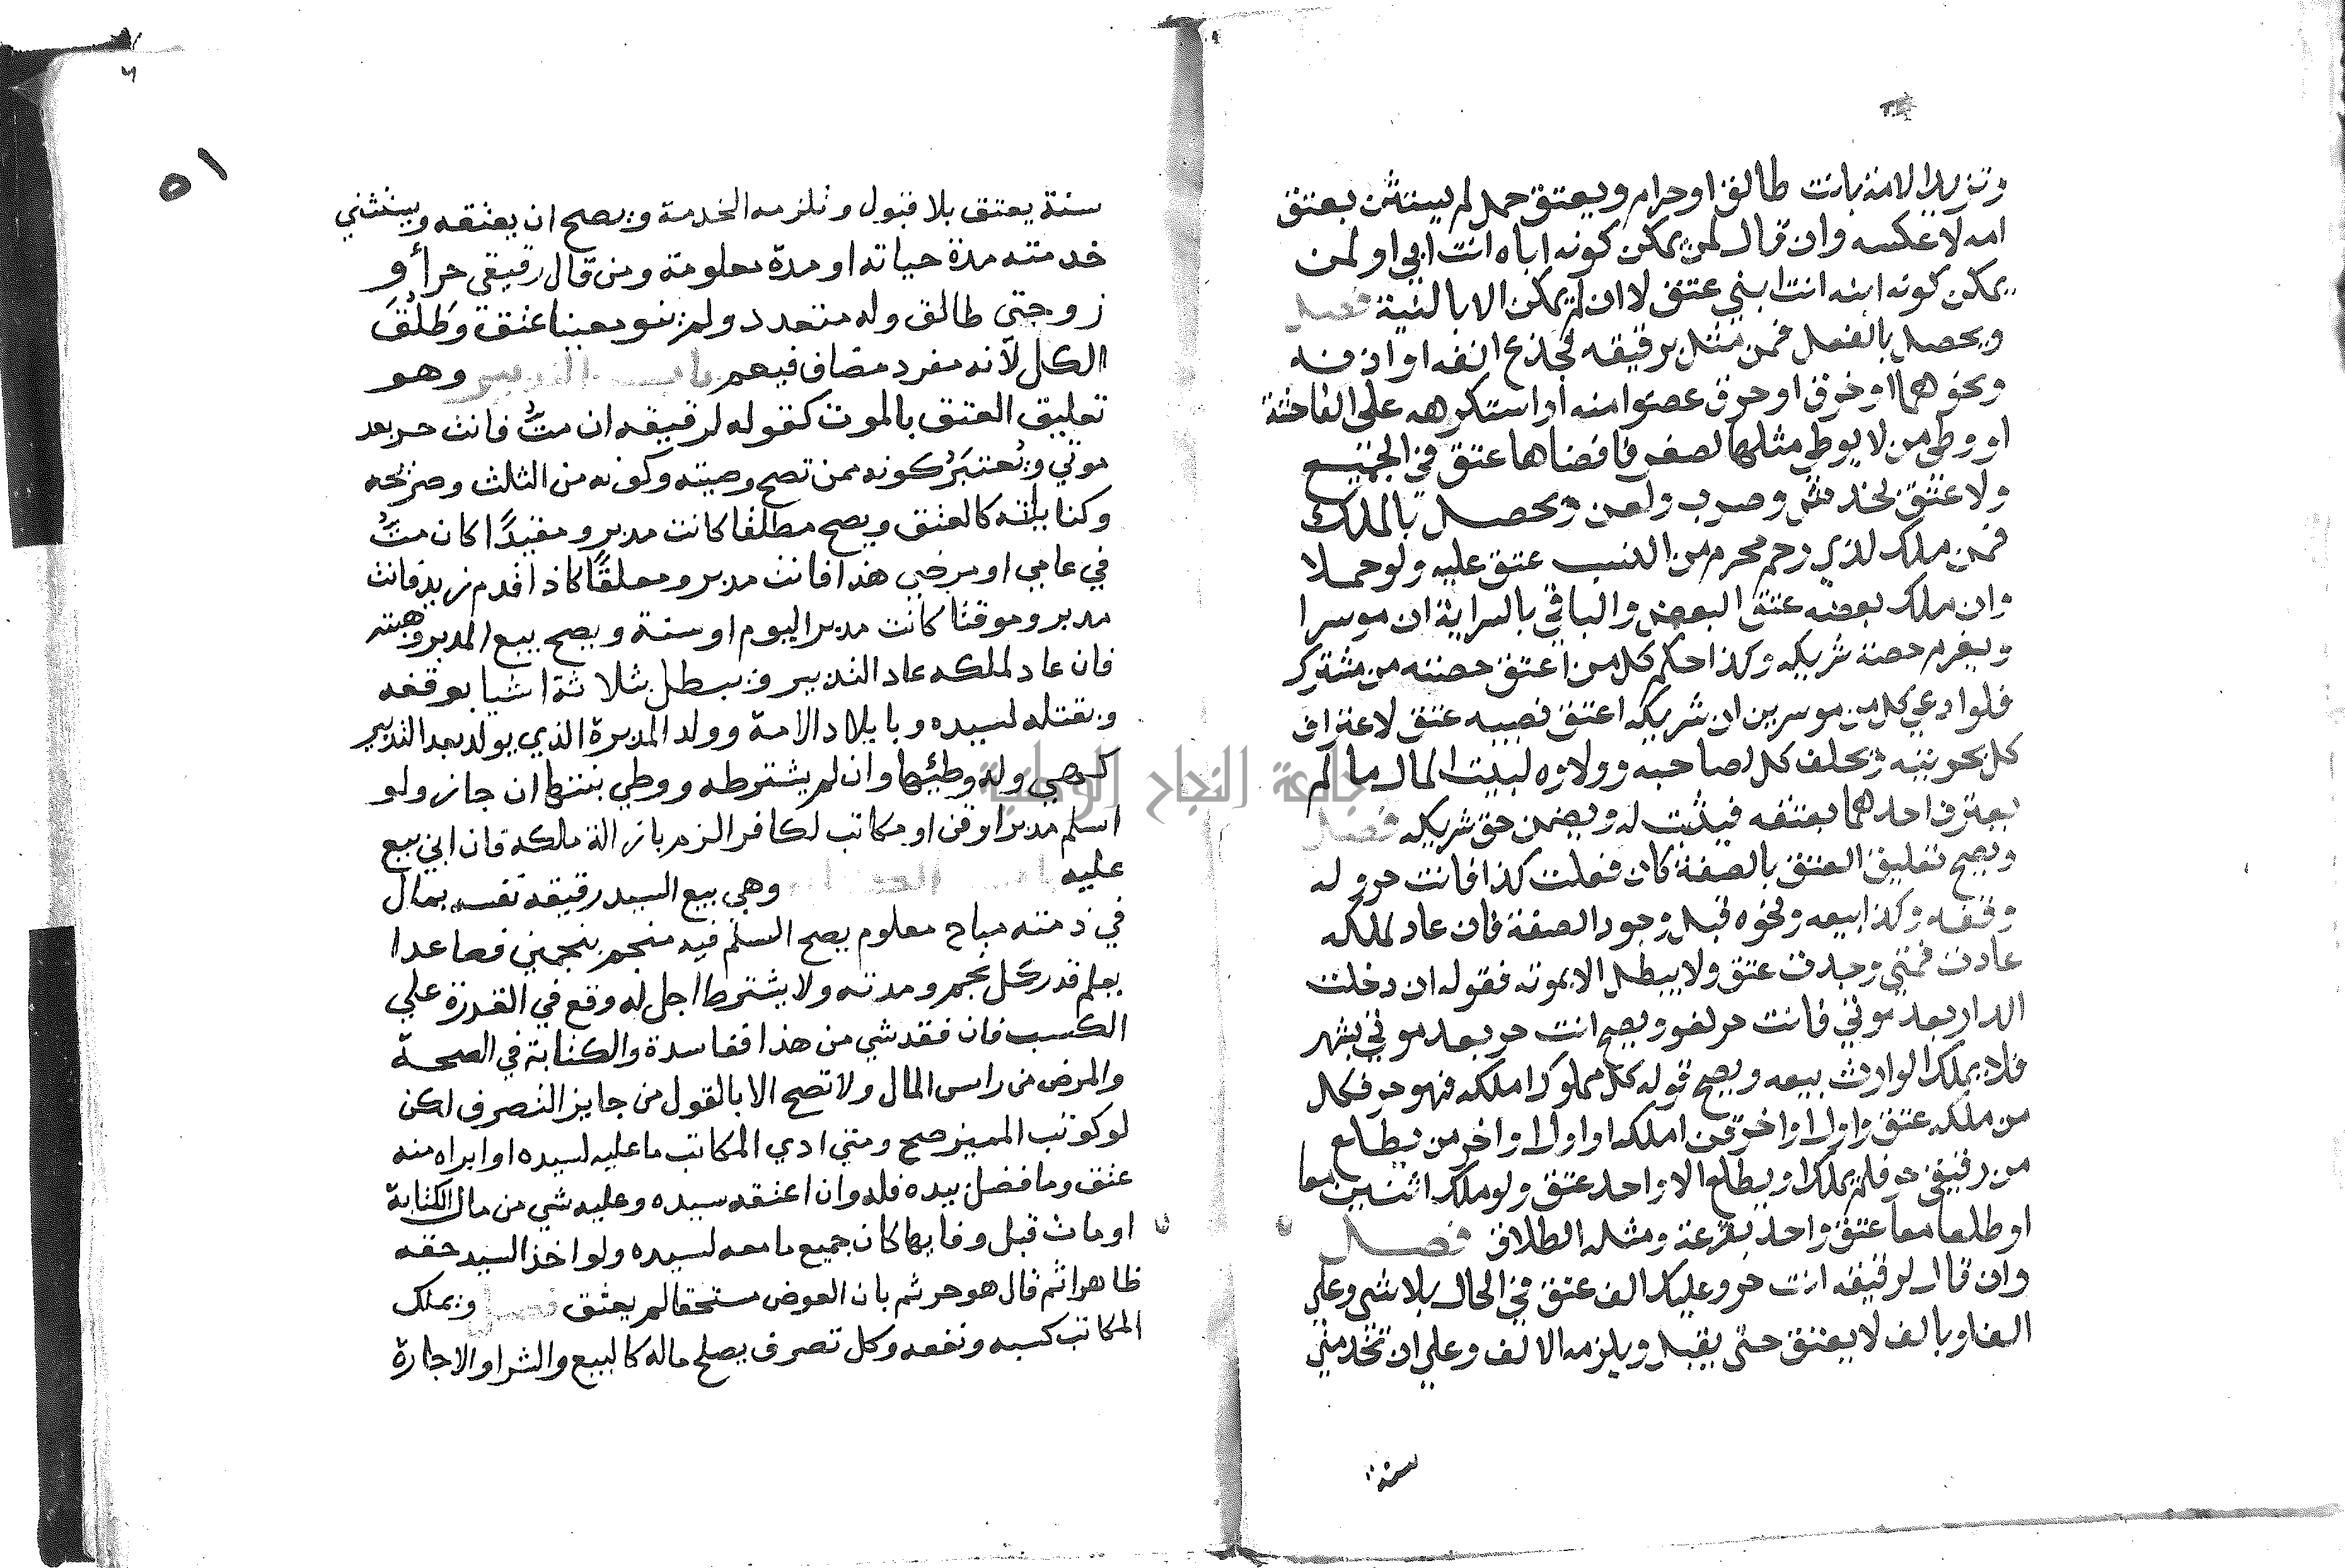 وتزيد الامة بانت طالق او حرام ويعتق حمل لم يستثن بعتق
امه لا عكسه وان قال لمن يمكن كونه اباه انت ابي او لمن
يمكن كونه ابنه انت ابني عتق لا ان لم يمكن الا بالنية فصل
ويحصل بالفعل فمن مثل برقيقه فجذع انفه او اذنه
ونحوهما او خرق او حرق عضوا منه او استكرهه على الفاحشة
او وطي من لا يوطي مثلها لصغر فافضاها عتق في الجميع
ولا عتق بخدش وضرب ولعن ويحصل بالملك
فمن ملك لذي رحم محرم من النسب عتق عليه ولو حملا
وان ملك بعضه عتق البعض والباقي بالسراية ان موسرا
ويغرم حصة شريكه وكذا حكم كل من اعتق حصته من مشترك
فلو ادعي كل من موسرين ان شريكه اعتق نصيبه عتق لاعتراف
كل بحريته ويحلف كل لصاحبه وولاوه لبيت المال ما لم
يعترف احدهما بعتقه فيثبت له ويضمن حق شريكه فصل
ويصح تعليق العتق بالصفة كان فعلت كذا فانت حر وله
وقفه وكذا بيعه ونحوه قبل وجود الصفة فان عاد لملكه
عادت فمتي وجدت عتق ولا يبطل الا بموته فقوله ان دخلت
الدار بعد موتي فانت حر لغو ويصح انت حر بعد موتي بشهر
فلا يملك الوارث بيعه ويصح قوله كل مملوك املكه فهو حر فكل
من ملكه عتق واول او اخر قن املكه او اول او اخر من يطلع
من رقيقي حر فلم يملك او يطلع الا واحد عتق ولو ملك اثنين معا
او طلعا معا عتق واحد بقرعة ومثله الطلاق فصل
وان قال لرقيقه انت حر وعليك الف عتق في الحال بلا شي وعلي
الف او بالف لا يعتق حتى يقبل ويلزمه الالف وعلي ان تخدمني
سنة
٥١
سنة يعتق بلا قبول وتلزمه الخدمة ويصح ان يعتقه ويستثني
خدمته مدة حياته او مدة معلومة ومن قال رقيقي حر أو
زوجتي طالق وله متعدد ولم ينو معينا عتق وطلق
الكل لأنه مفرد مضاف فيعم باب التدبير وهو
تعليق العتق بالموت كقوله لرقيقه ان مت فانت حر بعد
موتي ويعتبر كونه ممن تصح وصيته وكونه من الثلث وصريحه
وكنايته كالعتق ويصح مطلقا كانت مدبر ومقيدًا كان مت
في عامي او مرضي هذا فانت مدبر ومعلقًا كاذا قدم زيد فانت
مدبر وموقتا كانت مدبر اليوم او سنة ويصح بيع المدبر وهبته
فان عاد لملكه عاد التدبير ويبطل بثلاثة اشيا بوقفه
وبقتله لسيده وبايلاد الامة وولد المدبرة الذي يولد بعد التدبير
كهي وله وطيها وان لم يشترطه ووطي بنتها ان جاز ولو
اسلم مدبر او قن او مكاتب لكافر الزم بازالة ملكه فان ابي بيع
عليه باب الكتابة وهي بيع السيد رقيقه نفسه بمال
في ذمته مباح معلوم يصح السلم فيه منجم بنجمين فصاعدا
يعلم قدر كل نجم ومدته ولا يشترط اجل له وقع في القدرة علي
الكسب فان فقد شي من هذا ففاسدة والكتابة في الصحة
والمرض من راس المال ولا تصح الا بالقول من جايز التصرف لكن
لو كوتب المميز صح ومتي ادي المكاتب ما عليه لسيده او ابراه منه
عتق وما فضل بيده فله وان اعتقه سيده وعليه شي من مال الكتابة
او مات قبل وفايها كان جميع ما معه لسيده ولو اخذ السيد حقه
ظاهرا ثم قال هو حر ثم بان العوض مستحقا لم يعتق فصل ويملك
المكاتب كسبه ونفعه وكل تصرف يصلح ماله كالبيع والشرا والاجارة
جامعة النجاح الوطنية